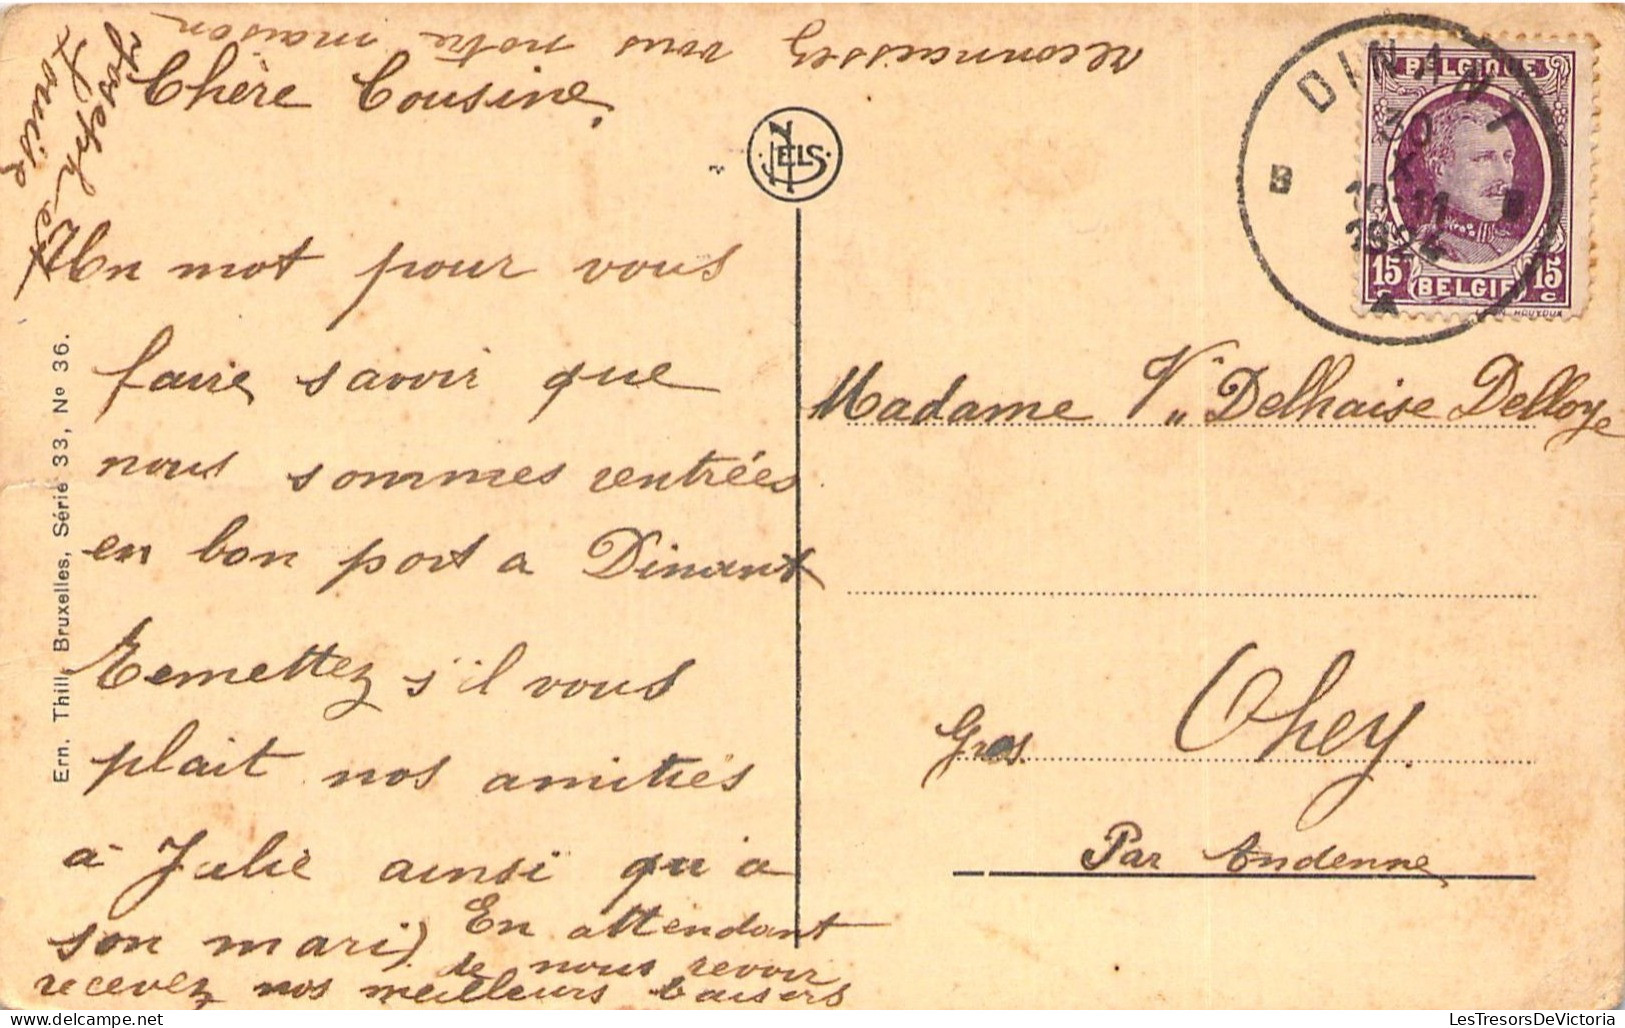 reconnaissez vous notre maison
Chère Cousine,
Un mot pour vous
faire savoir que
nous sommes rentrées
en bon port a Dinant
Remettez s'il vous
plait nos amitiés
à Julie ainsi qu'a
son mari)
En attendant
de nous revoir
recevez nos meilleurs baisers
Joseph et
Louise
Ern. Thill, Bruxelles, Série 33, No 36.
NELS
DINANT
30
X
10-11
192
B
A
BELGIQUE
15 c
15 c
BELGIE
Madame Ve Delhaise Delloye
Gros.
Ohey.
Par Andenne
LesTresorsDeVictoria